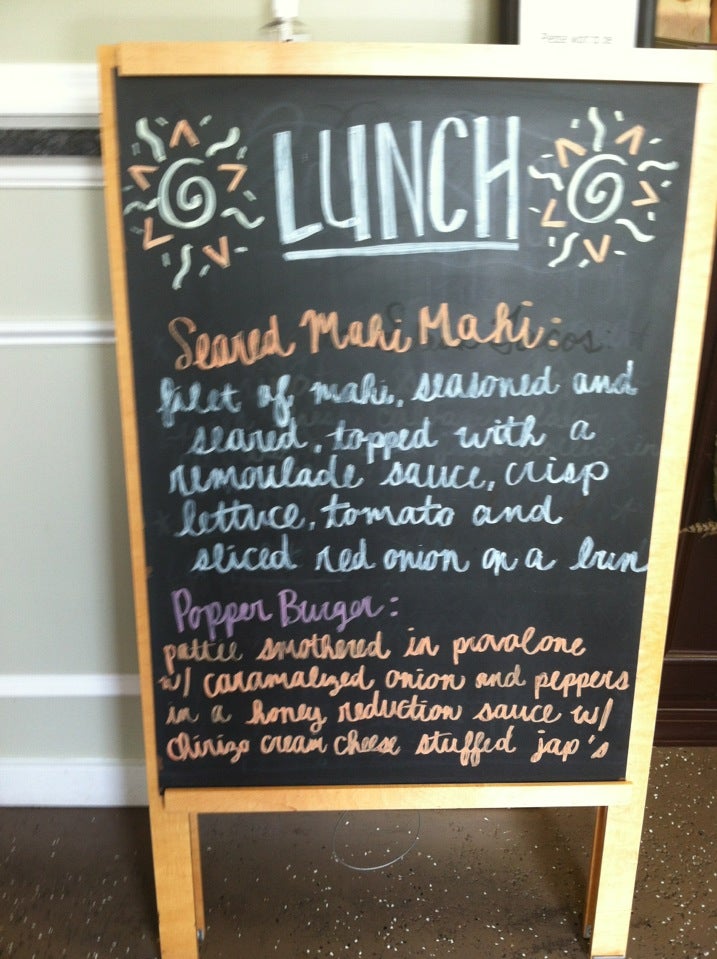 Please wait to be
LUNCH
Seared Mahi Mahi:
filet of mahi, seasoned and
seared, topped with a
remoulade sauce, crisp
lettuce, tomato and
sliced red onion on a bun
Popper Burger:
pattie smothered in provalone
w/ caramalized onion and peppers
in a honey reduction sauce w/
Chirizo cream cheese stuffed jap's